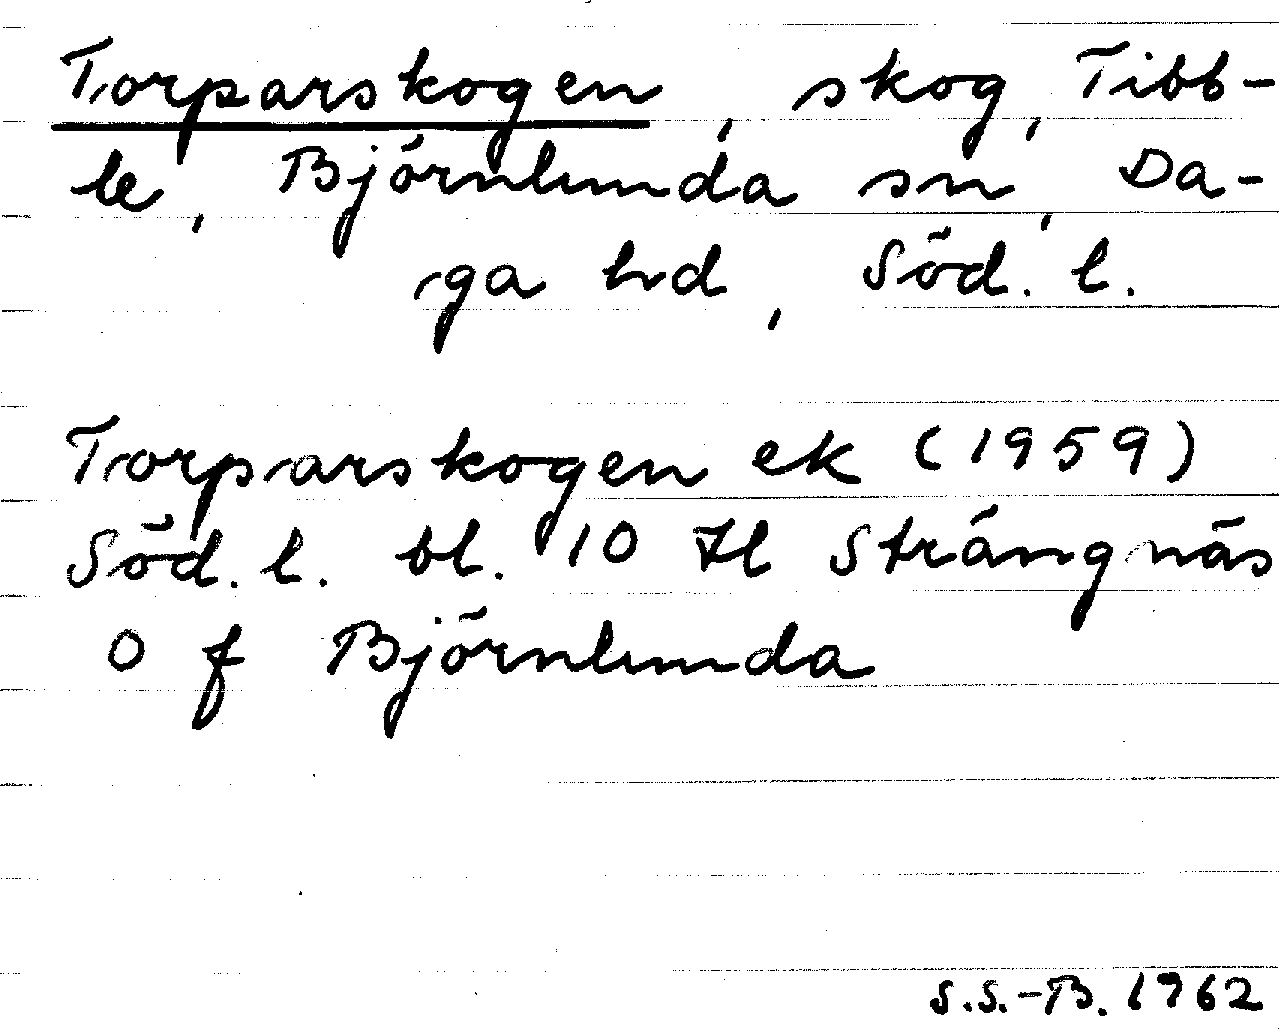 Torparskogen, skog, Tibb-
le, Björnlunda sn, Da-
ga hd, Söd. l.
Torparskogen ek (1959)
Söd. l. bl. 10 Strängnäs
O f Björnlunda
S.S.-B. 1962